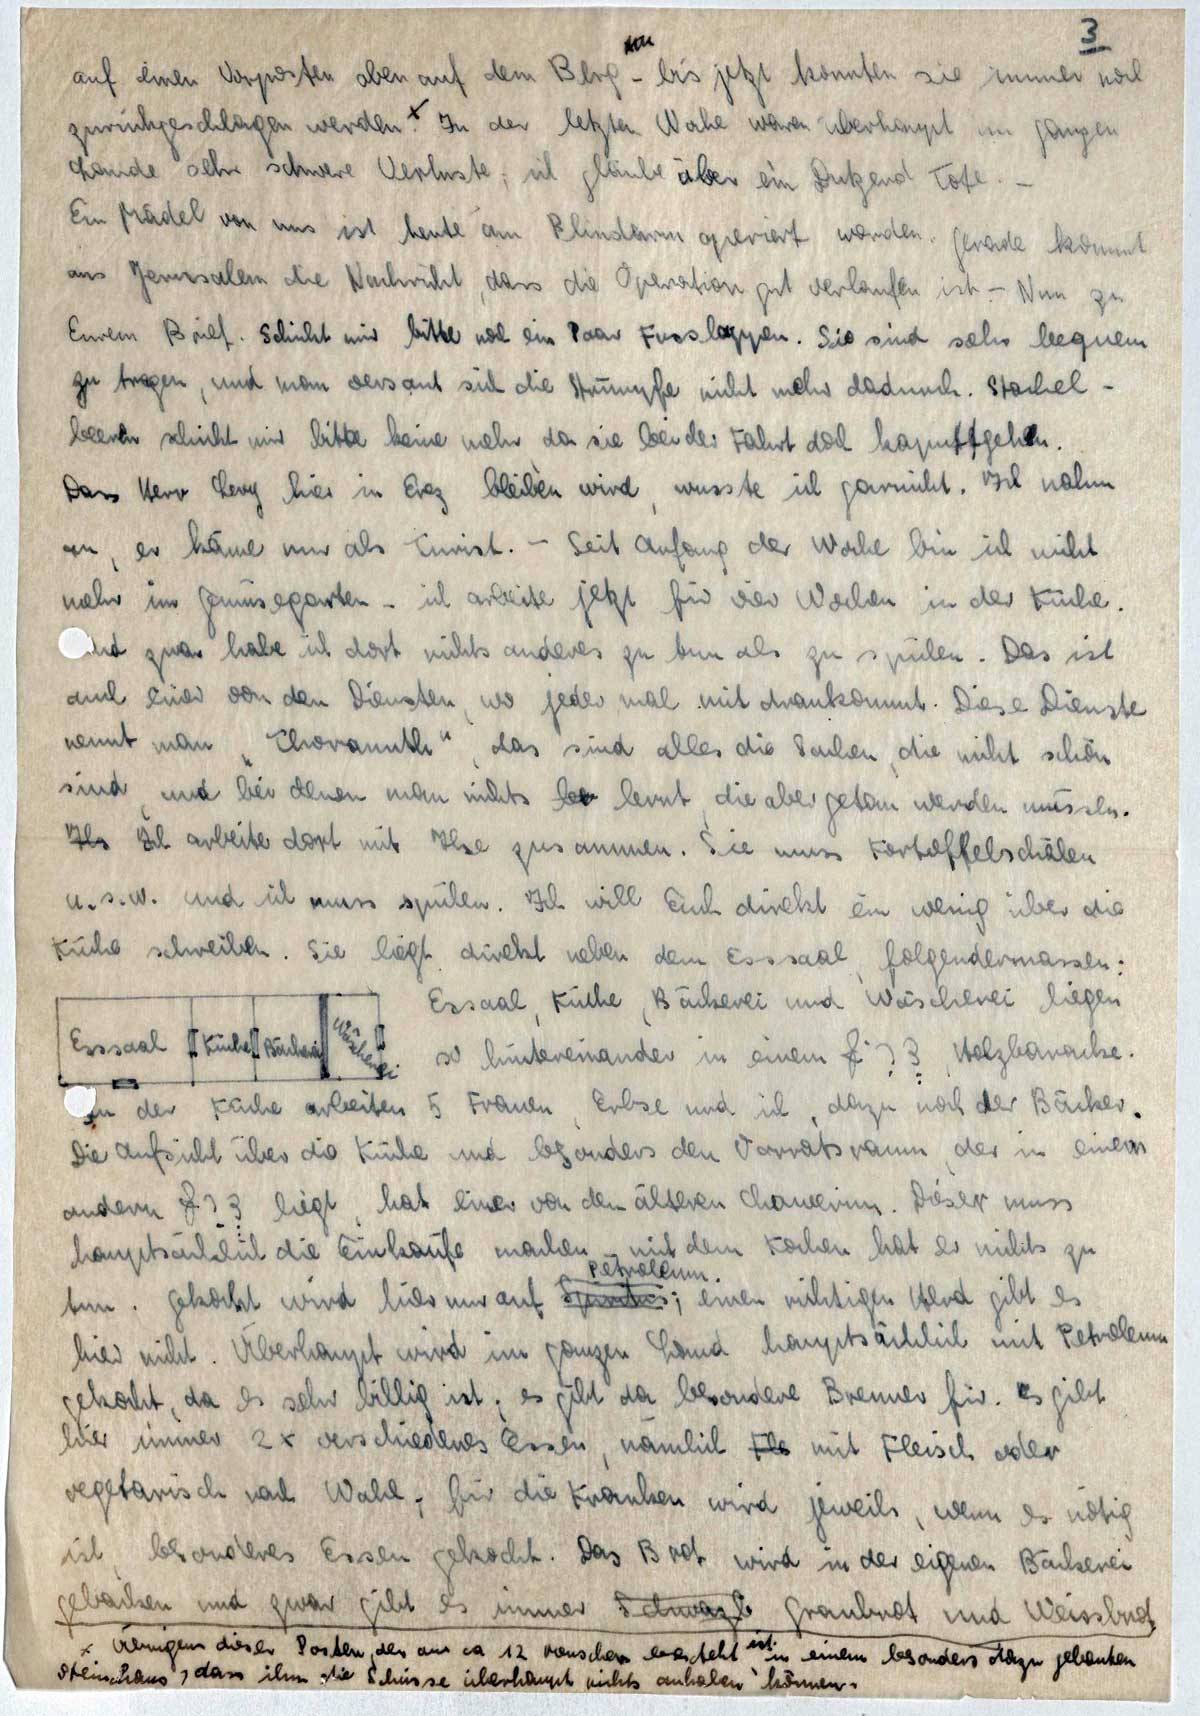 3
auf einen Vorposten oben auf dem Berg – bis jetzt konnten sie immer noch
zurückgeschlagen werden.x In der letzten Woche waren überhaupt im ganzen
Lande sehr schwere Verluste; ich glaube über ein Dutzend Tote. –
Ein Mädel von uns ist heute am Blindarm operiert worden. Gerade kommt
aus Jerusalem die Nachricht, dass die Operation gut verlaufen ist – Nun zu
Eurem Brief. Schickt mir bitte noch ein Paar Fusslappen. Sie sind sehr bequem
zu tragen, und man versaut sich die Strümpfe nicht mehr dadurch. Stachel-
beeren schickt mir bitte keine mehr da sie bei der Fahrt doch kaputtgehen.
Dass Herr Levy hier in Erez bleiben wird, wusste ich garnicht. Ich nahm
an, er käme nur als Turist. – Seit Anfang der Woche bin ich nicht
mehr im Gemüsegarten – ich arbeite jetzt für vier Wochen in der Küche.
und zwar habe ich dort nichts anderes zu tun als zu spülen. Das ist
auch einer von den Diensten, wo jeder mal mit drankommt. Diese Dienste
nennt man „Thorannuth", das sind alles die Sachen, die nicht schön
sind, und bei denen man nichts ler lernt, die aber getan werden müssen.
Ils Ich arbeite dort mit Ilse zusammen. Sie muss Kartoffelschälen
u.s.w. und ich muss spülen. Ich will Euch direkt ein wenig über die
Küche schreiben. Sie liegt direkt neben dem Esssaal, folgendermassen:
Esssaal Küche Bäckerei Wäscherei
Essaal, Küche, Bäckerei und Wäscherei liegen
so hintereinander in einem צריף, Holzbaracke.
In der Küche arbeiten 5 Frauen, Erbse und ich, dazu noch der Bäcker.
Die Aufsicht über die Küche und besonders den Vorratsraum, der in einem
andern צריף liegt, hat einer von den älteren Chawerim. Dieser muss
hauptsächlich die Einkäufe machen – mit dem Kochen hat er nichts zu
Petroleum.
tun. Gekocht wird hier nur auf Spiritus; einen richtigen Herd gibt es
hier nicht. Überhaupt wird im ganzen Land hauptsächlich mit Petroleum
gekocht, da es sehr billig ist; es gibt da besondere Brenner für. Es gibt
hier immer 2x verschiedenes Essen, nämlich Fle mit Fleisch oder
vegetarisch nach Wahl; für die Kranken wird jeweils, wenn es nötig
ist, besonderes Essen gekocht. Das Brot wird in der eigenen Bäckerei
gebacken und zwar gibt es immer Schwarzb Graubrot und Weissbrot,
x Übrigens dieser Posten, der aus ca 12 Menschen besteht ist in einem besonders dazu gebauten
Steinhaus, dass ihm die Schüsse überhaupt nichts anhaben können.